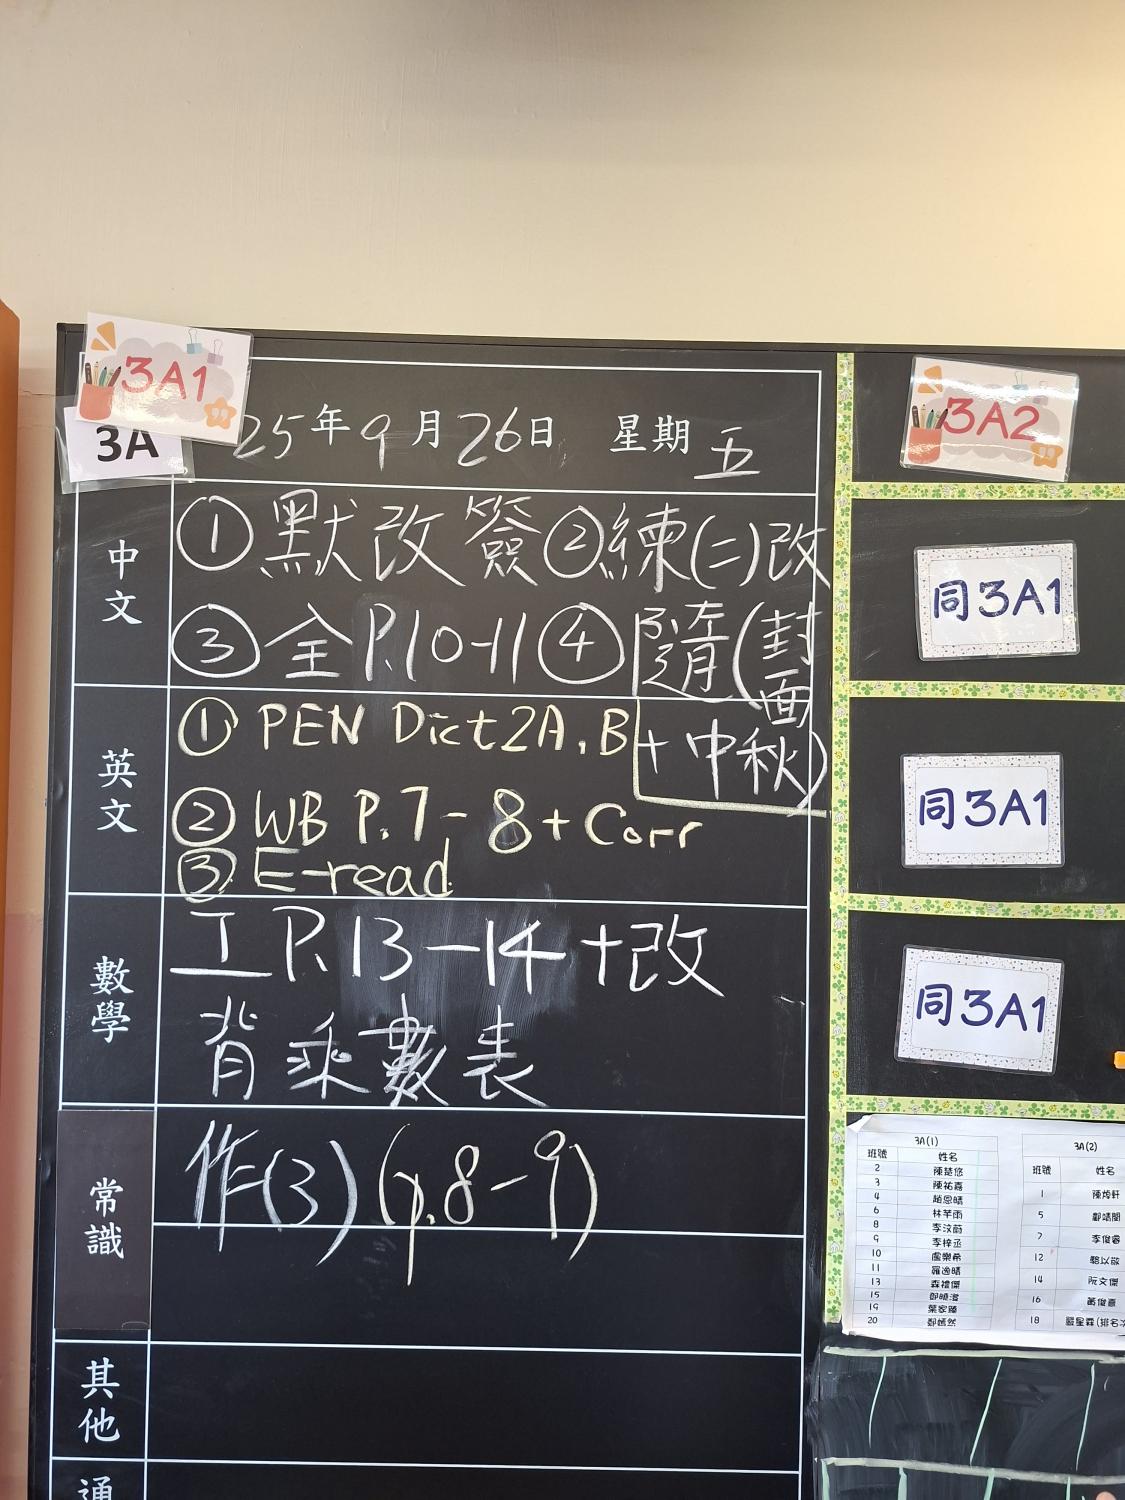 3A1
3A
25年9月26日 星期五
中文
①默改簽②練(二)改
③全P.10-11④隨(封面
+中秋)
英文
① PEN Dict 2A, B
② WB P.7-8 + Corr
③ E-read
數學
工 P.13-14 +改
背乘數表
常識
作(3) (p.8-9)
其他
通
3A2
同3A1
同3A1
同3A1
3A(1)
班號 姓名
2 陳楚悠
3 陳祐嘉
4 趙恩晴
6 林芊雨
8 李汶蔚
9 李梓丞
10 盧樂希
11
13
15
19
20 鄭嫣然
3A(2)
班號 姓名
1
5
7 李俊睿
12
14 阮文傑
16
18